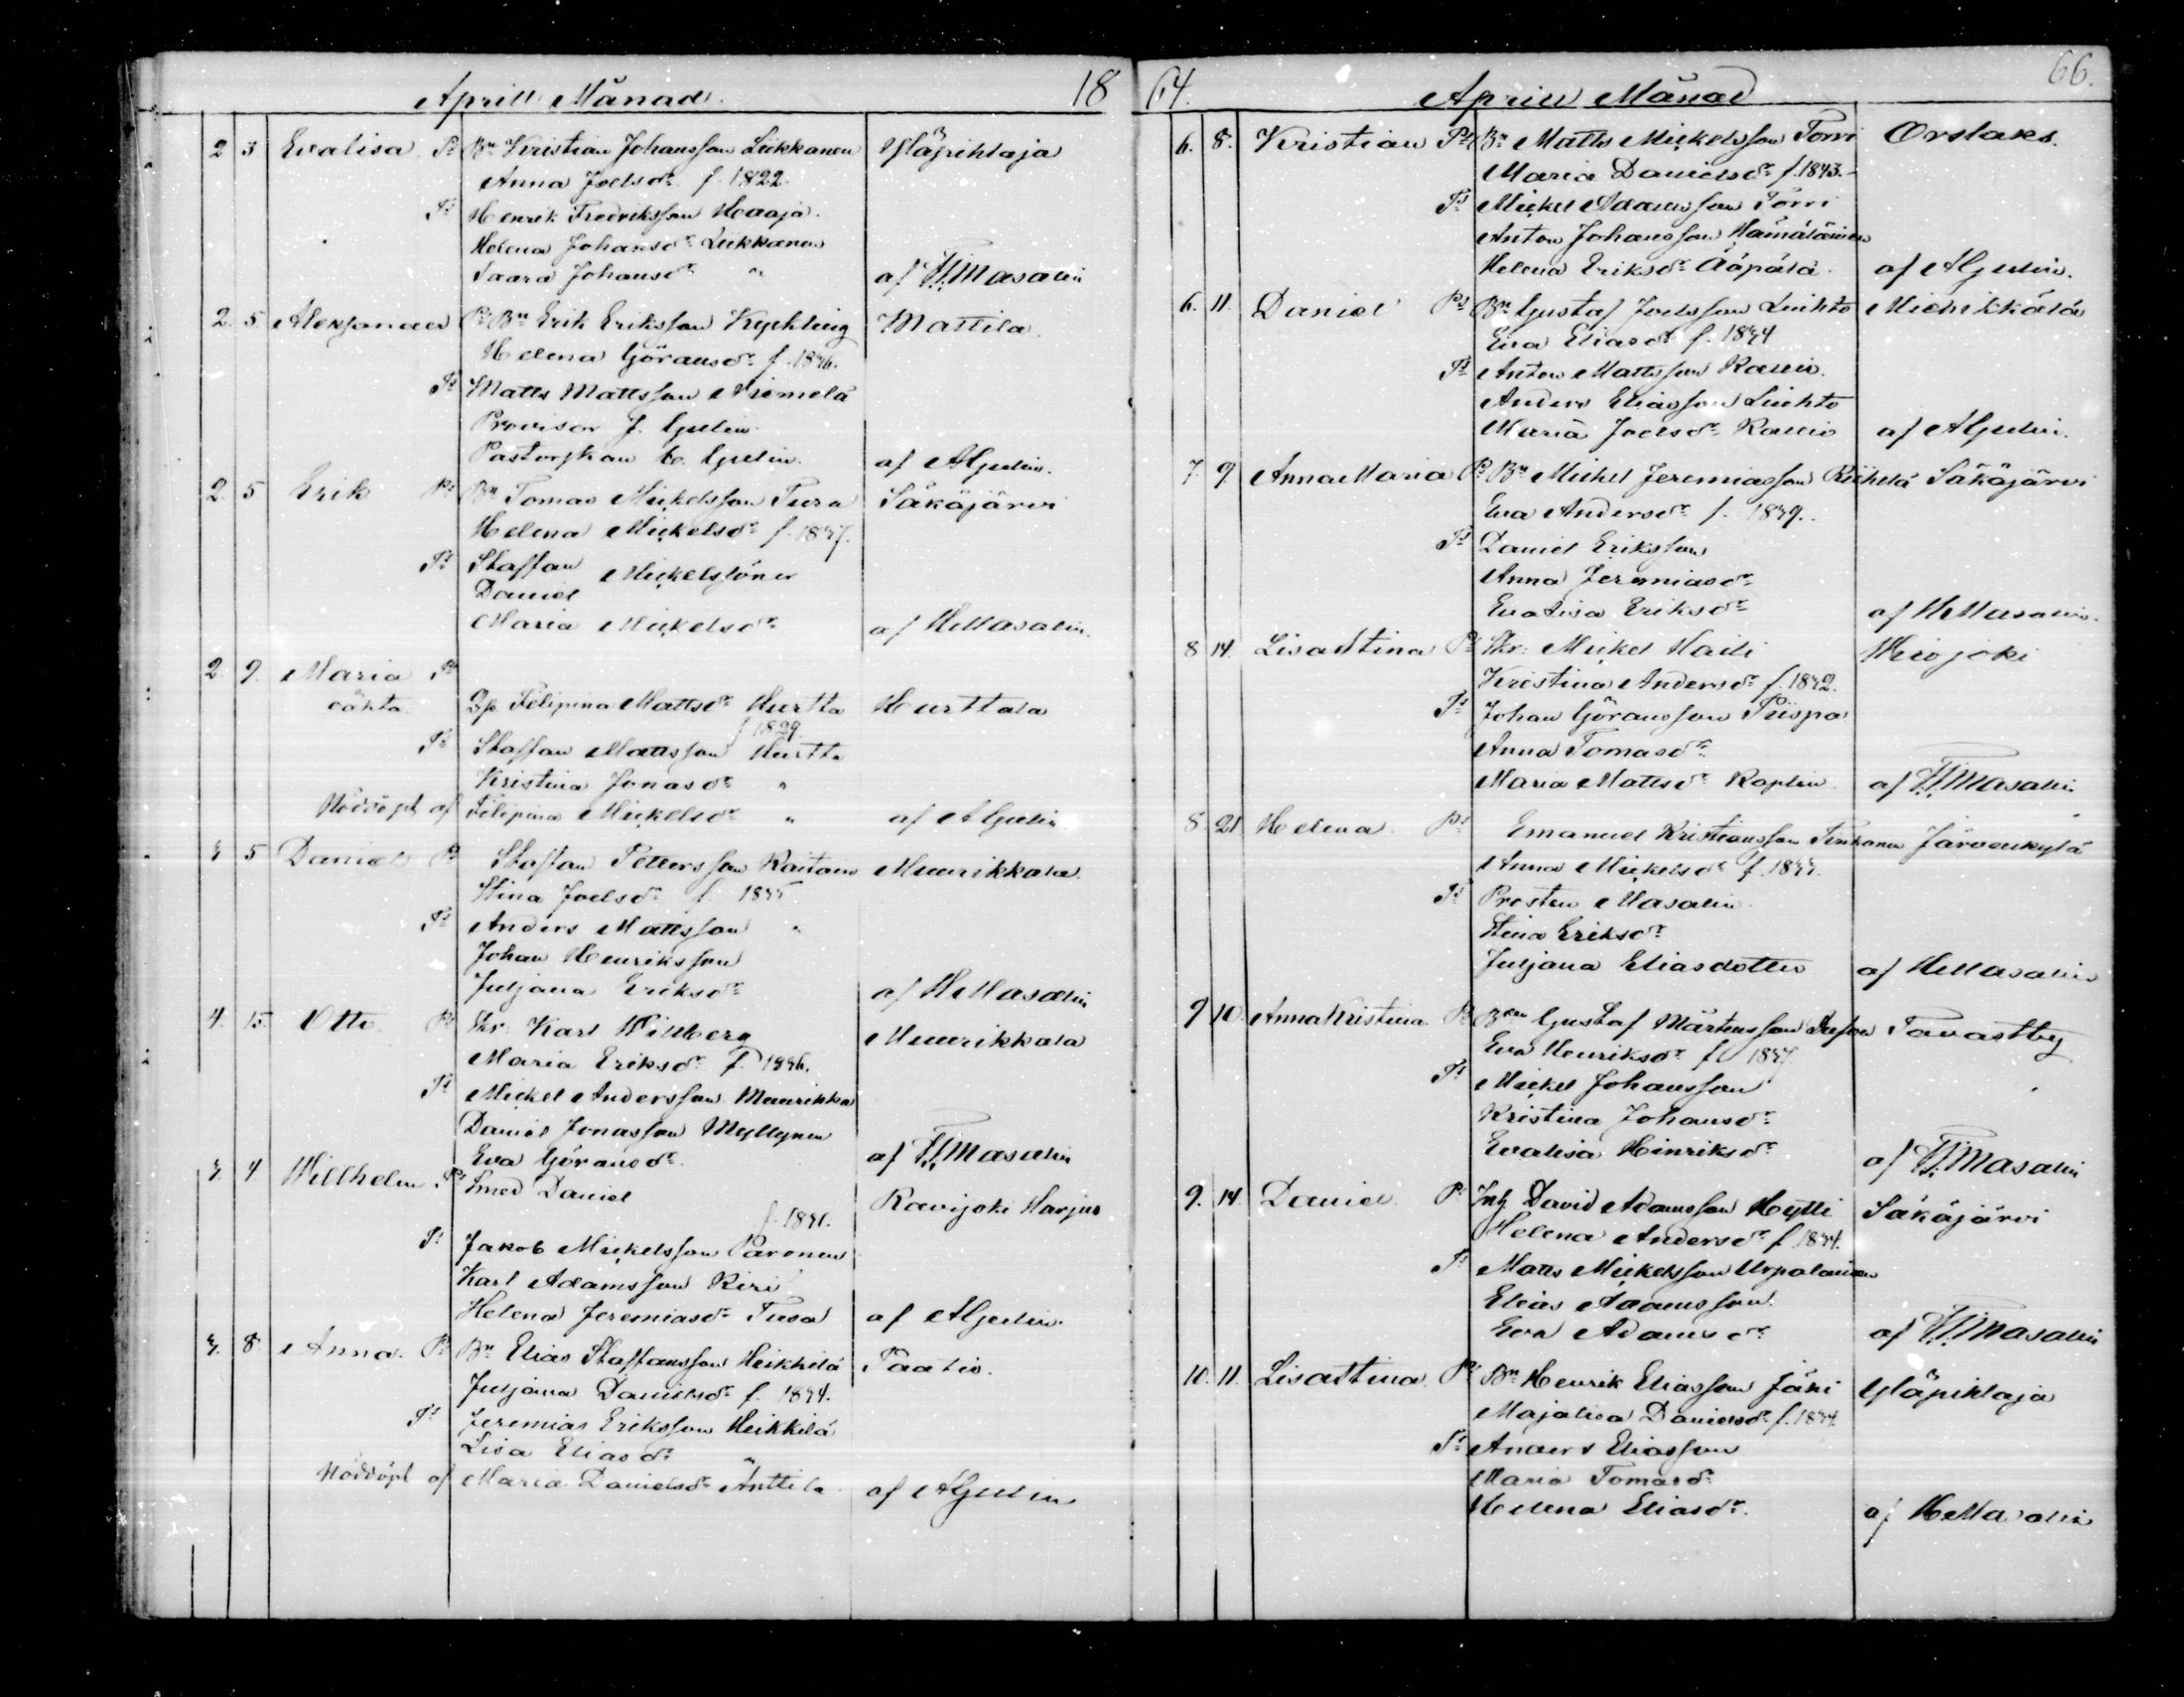 Aprill Månad. 18
2 3 Evalisa Ps Bn Kristian Johansson Liikkanen Yläpihlaja
Anna Joelsdr f. 1822.
Ts Henrik Fredriksson Haaja.
Helena Johansdr Liikkanen
Saara Johansdr " af Masalin
2. 5 Alexander Ps Bn Erik Eriksson Kyckling Mattila
Helena Göransdr f. 1836.
Ts Matts Mattsson Niemelä
Provisor J. Gjelin
Pastorskan C. Gjelin. af AGjelin.
2. 5 Erik Ps Bn Tomas Mickelsson Tura Säkäjärvi
Helena Mickelsdr f. 1837.
Ts Staffan Mickelssöner
Daniel
Maria Mickelsdr af HMasalin.
2. 9. Maria Ps
oäkta Filipina Mattsdr Hurtta Hurttala
f 1829.
Ts Staffan Mattsson Hurtta
Kristina Jonasdr "
Nöddöpt af Filipina Mickelsdr " af AGjelin
3 5 Daniel Ps Staffan Pettersson Raitain Muurikkala
Stina Joelsdr f. 1835
Ts Anders Mattsson "
Johan Henriksson
Juljana Eriksdr af HMasalin
4. 15. Otto Ps Skr. Karl Willberg Muurikkala
Maria Eriksdr f. 1836.
Ts Mickel Andersson Muurikka
Daniel Jonasson Myllynen
Eva Göransdr af Masalin
3. 4 Willhelm Ps Smed Daniel Ravijoki Harjus
Ts Jakob Mickelsson Paronen
Karl Adamsson Kiri
Helena Jeremiasdr Tusa af AGjelin.
3. 8 Anna. Ps Bn Elias Staffansson Heikkilä Paatio.
Juljana Danielsdr f. 1834.
Ts Jeremias Eriksson Heikkilä
Lisa Eliasdr "
Nöddöpt af Maria Danielsdr Anttila af AGjelin
64. Aprill Månad 66.
6. 8. Kristian Ps Bn Matts Mickelsson Torri Orslaks.
Maria Danielsdr f. 1843.
Ts Mickel Adamsson Torri
Anton Johansson Hämäläinen
Helena Eriksdr Ääpälä af AGjelin.
6. 11. Daniel Ps Bn Gustaf Joelsson Luihto Miehikkälä
Eva Eliasdr f. 1834
Ts Anton Mattsson Rauio.
Anders Eliasson Luihto
Maria Joelsdr Rauio af AGjelin.
7. 9. Anna Maria Ps Bn Mickel Jeremiasson Riihelä Säkäjärvi
Eva Andersdr f. 1839.
Ts Daniel Eriksson
Anna Jeremiasdr
Evalisa Eriksdr af HMasalin.
8 14. Lisa Stina Ps Skr: Mickel Haili Wirojoki
Kristina Andersdr f. 1832.
Ts Johan Göransson Piispa
Anna Tomasdr
Maria Mattsdr Koplin af Masalin
8 21 Helena Ps Emanuel Kristiansson Tinkanen Järvenkylä
Anna Mickelsdr f. 1833.
Ts Prosten Masalin
Stina Eriksdr
Juljana Eliasdotter af HMasalin
9 10. Anna Kristina Ps Gustaf Mårtensson Tavastby
Eva Henriksdr f. 1837.
Ts Mickel Johansson
Kristina Johansdr
Evalisa Hinriksdr af Masalin
9. 14. Daniel Ps Inh David Adamsson Hytti Säkäjärvi
Helena Andersdr f. 1834.
Ts Matts Mickelsson Urpalainen
Elias Adamsson
Eva Adamsdr af Masalin
10. 11. Lisa Stina Ps Bn Henrik Eliasson Jäki Yläpihlaja
Majalisa Danielsdr f. 1834
Ts Anders Eliasson
Maria Tomasdr
Helena Eliasdr. af HMasalin